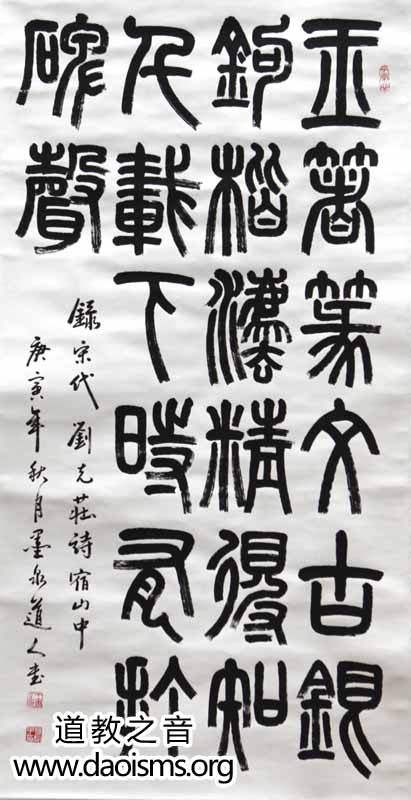 玉箸篆文古銀
鉤楷灋精得知
千載下時有打
碑聲
錄宋代劉克莊詩宿山中
庚寅年秋月墨泉道人書
道教之音
www.daoisms.org